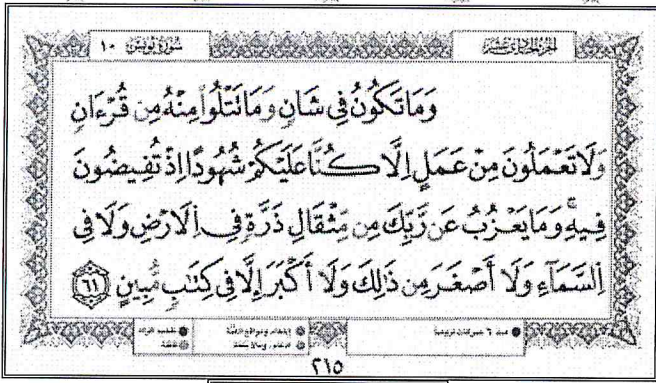 سُورَةُ يُونُسَ ١٠
وَمَا تَكُونُ فِي شَانٍ وَمَا نَتْلُواْ مِنْهُ مِن قُرْءَانٍ
وَلَا تَعْمَلُونَ مِنْ عَمَلٍ اِلَّا كُنَّا عَلَيْكُمْ شُهُودًا اِذْ تُفِيضُونَ
فِيهِۚ وَمَا يَعْزُبُ عَن رَّبِّكَ مِن مِّثْقَالِ ذَرَّةٍ فِي اِلَارْضِ وَلَا فِي
اِلسَّمَآءِ وَلَا أَصْغَرَ مِن ذَٰلِكَ وَلَا أَكْبَرَ إِلَّا فِي كِتَٰبٍ مُّبِينٍ ٦١
٢١٥